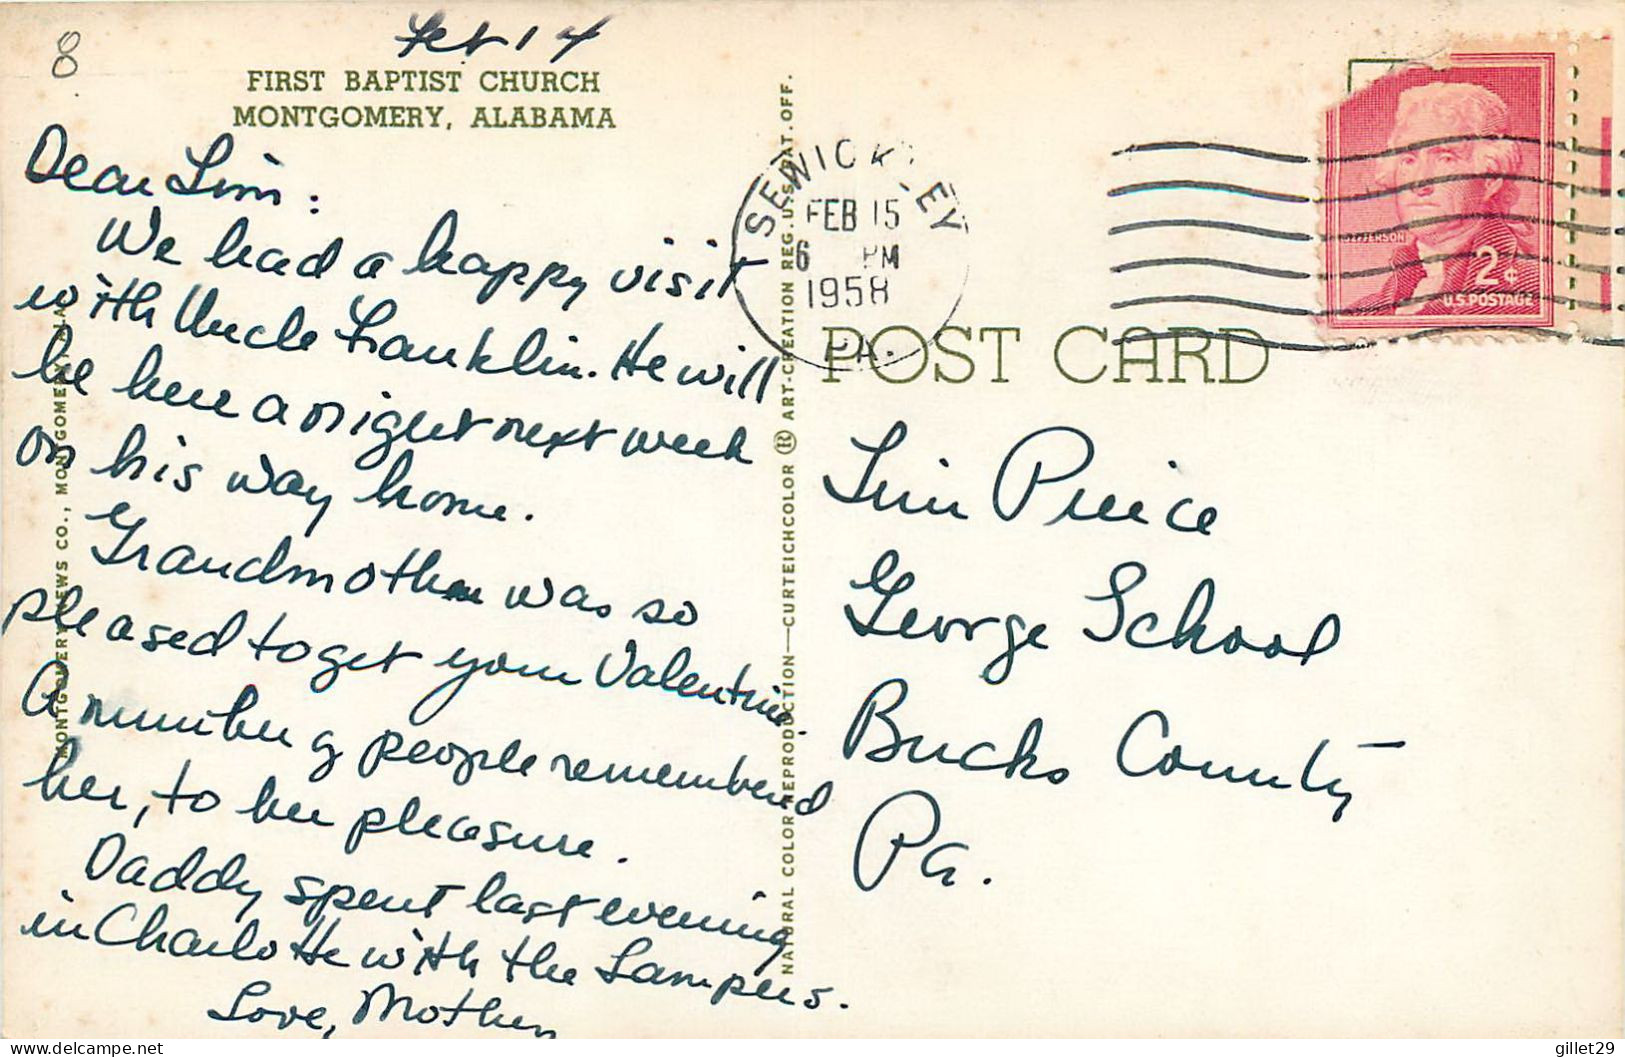 8
Feb 14
FIRST BAPTIST CHURCH
MONTGOMERY, ALABAMA
Dear Lim:
We had a happy visit
with Uncle Franklin. He will
be here a night next week
on his way home.
Grandmother was so
pleased to get your Valentine.
A number of people remembered
her, to her pleasure.
Daddy spent last evening
in Charlotte with the Lampers.
Love, Mother
MONTGOMERY NEWS CO., MONTGOMERY, ALA.
NATURAL COLOR REPRODUCTION—CURTEICHCOLOR ® ART-CREATION REG. U.S. PAT. OFF.
SEWICKLEY
FEB 15
6 PM
1958
PA.
JEFFERSON
2¢
U.S. POSTAGE
POST CARD
Lim Pierce
George School
Bucks County
Pa.
Delcampe.net
gillet29